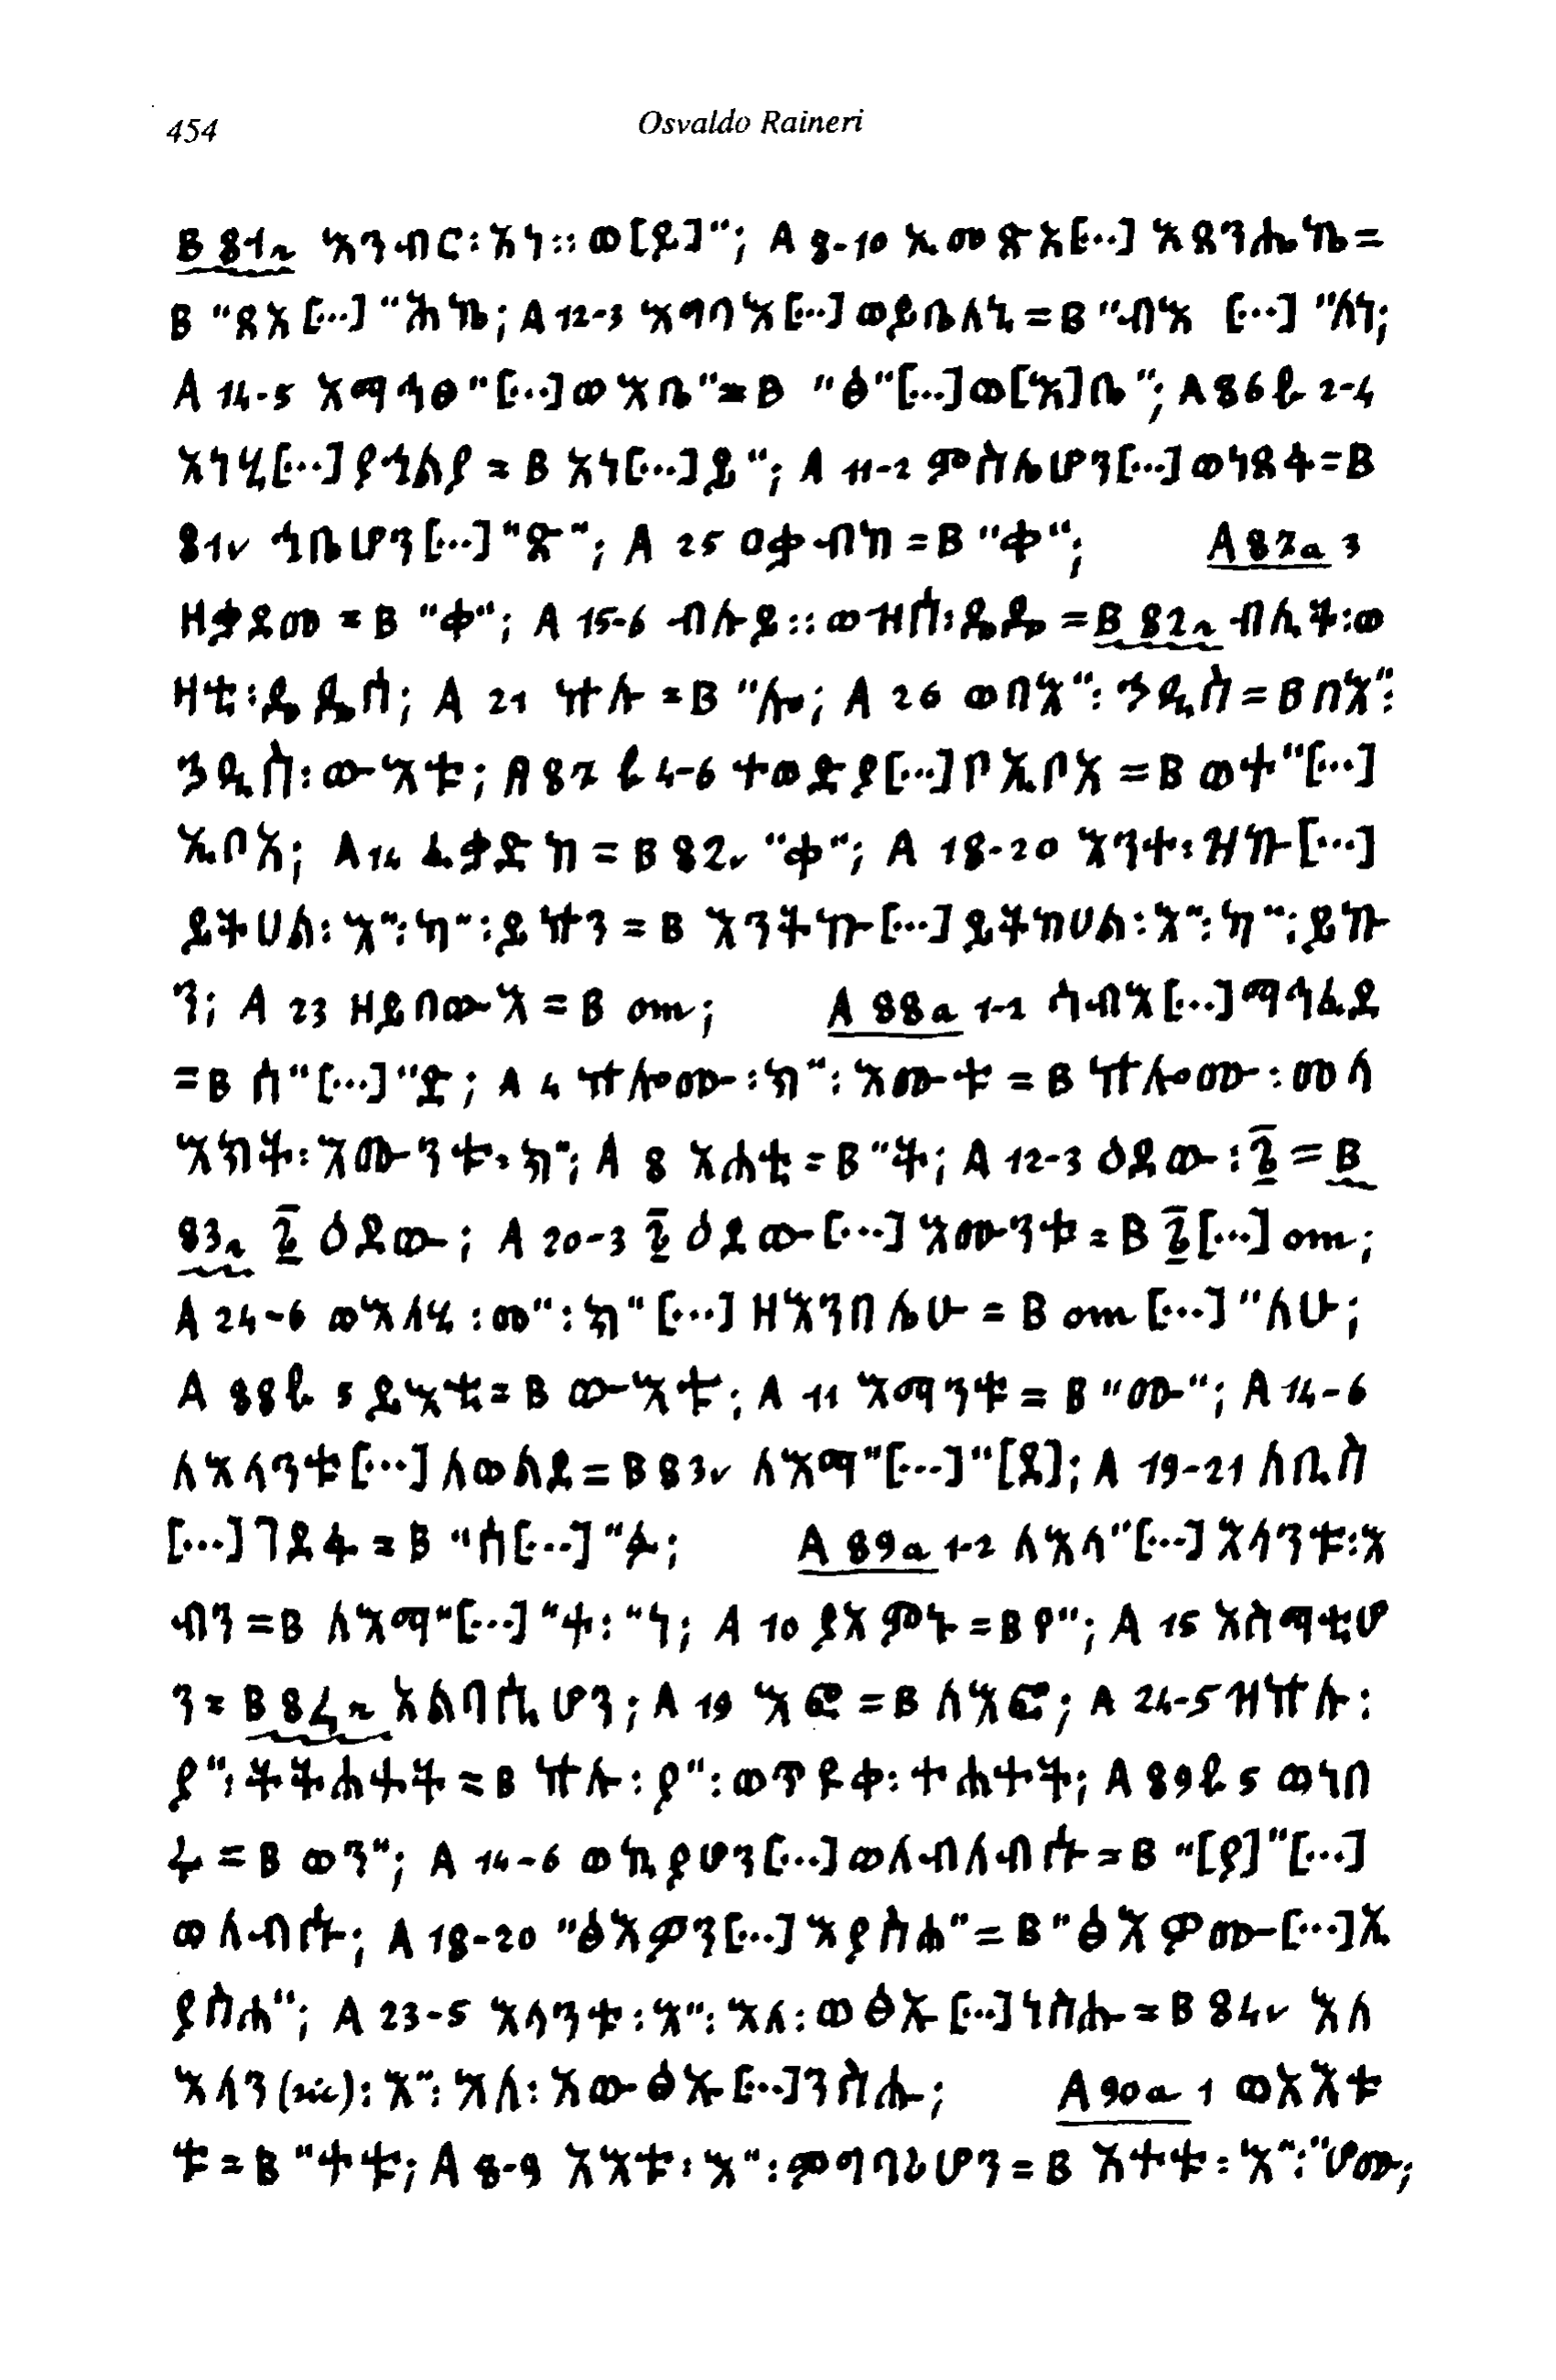 454 Osvaldo Raineri
B 81r ኧንብር፡አነ፡፡ወ[ይ]"; A 8-10 ኢመጽአ[...] ኧጸንሑኬ=
B "ጸአ[...]"ሕኬ; A 12-3 ኧግባኧ[...]ወይቤለኒ=B "ብኧ [...] "ለነ;
A 14-5 አማኅፀ"[...]ወኧቤ"=B "ፅ"[...]ወ[ኧ]ቤ"; A 86b 2-4
አነሂ[...]ያኅልያ = B አነ[...]ይ"; A 11-2 ምስሌሆን[...]ወነጸፉ=B
81v ኅቤሆን[...]"ጽ"; A 25 ዐቃብከ =B "ቀ"; A 87a 3
ዘቃደመ = B "ቀ"; A 15-6 ብሉይ፡፡ወዝስ፡ዴዴ =B 82r ብሊት፡ወ
ዛቲ፡ዴዴስ; A 21 ኵሉ =B "ሎ; A 26 ወበኧ"፡ ኃዲስ=B በኧ"፡
ኃዲስ፡ውኧቱ; A 87b 4-6 ተወድያ[...]ቦኢቦአ =B ወተ"[...]
ኢቦአ; A 14 ፈቃድከ = B 82v "ቀ"; A 18-20 ኧንተ፡ዝኩ[...]
ይትሀል፡ኧ"፡ከ"፡ይኵን = B ኧንትኩ[...]ይትከሀል፡ኧ"፡ከ"፡ይኩ
ን; A 23 ዘይበውኧ = B om; A 88a 1-2 ሳብኧ[...]ማኅፈደ
=B ሰ"[...]"ድ; A 4 ኵሎሙ፡ክ"፡ኧሙቱ = B ኵሎሙ፡መሳ
ኧክት፡ኧሙንቱ፡ክ"; A 8 አሐቲ=B "ት; A 12-3 ዕደው፡፪ = B
83r ፪ ዕደው; A 20-3 ፪ ዕደው[...]ኧሙንቱ=B ፪[...]om;
A 24-6 ወኧለሂ፡መ"፡ክ"[...]ዘኧንበሌሁ = B om [...]"ለሁ;
A 88b 5 ይኧቲ=B ውኧቱ; A 11 ኧማንቱ = B "ሙ"; A 14-6
ለኧሳንቱ[...]ለወልደ=B 83v ለኧማ"[...]"[ዴ]; A 19-21 ለቢስ
[...]ገደፋ = B "ሰ[...]"ፉ; A 89a 1-2 ለኧሳ"[...]ኧሳንቱ፡ኧ
ብን=B ለኧማ"[...]"ቱ፡"ነ; A 10 ያአምኑ=B የ"; A 15 አስማቲሆ
ን= B 84r አልባሲሆን; A 19 ኧፎ=B ለኧፎ; A 24-5 ዝኵሉ፡
ያ"፡ትትሐተት=B ኵሉ፡ያ"፡ወጥዩቀ፡ተሐተት; A 89b 5 ወነበ
ራ=B ወን"; A 14-6 ወኪያሆን[...]ወለብለብሱ=B "[ያ]"[...]
ወለብሱ; A 18-20 "ፅኧዎን[...]ኧያስሐ"=B "ፅኧዎሙ[...]ኢ
ያስሐ"; A 23-5 ኧሳንቱ፡ኧ"፡ኧለ፡ወፅኡ[...]ነስሑ=B 84v ኧለ
ኧሳን(sic)፡ኧ"፡ኧለ፡አውፅኡ[...]ንስሑ; A 90a 1 ወአኧቱ
ቱ=B "ተቱ; A 8-9 አኧቱ፡ኧ"፡ምግባሪሆን=B አተቱ፡ኧ"፡"ሆሙ;